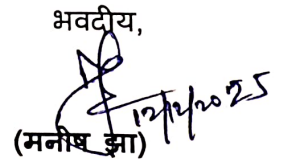 भवदीय,
12/12/2025
(मनीष झा)